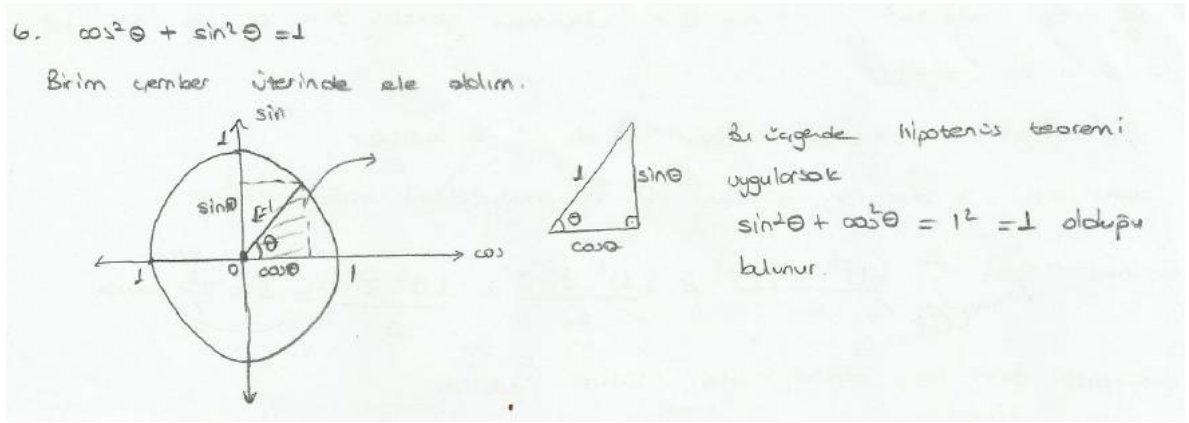 6. cos²θ + sin²θ = 1
Birim çember üzerinde ele aldım.
sin
1
sinθ
r=1
θ
1
0
cosθ
1
cos
1
sinθ
θ
cosθ
Bu üçgende hipotenüs teoremi
uygularsak
sin²θ + cos²θ = 1² = 1 olduğu
bulunur.